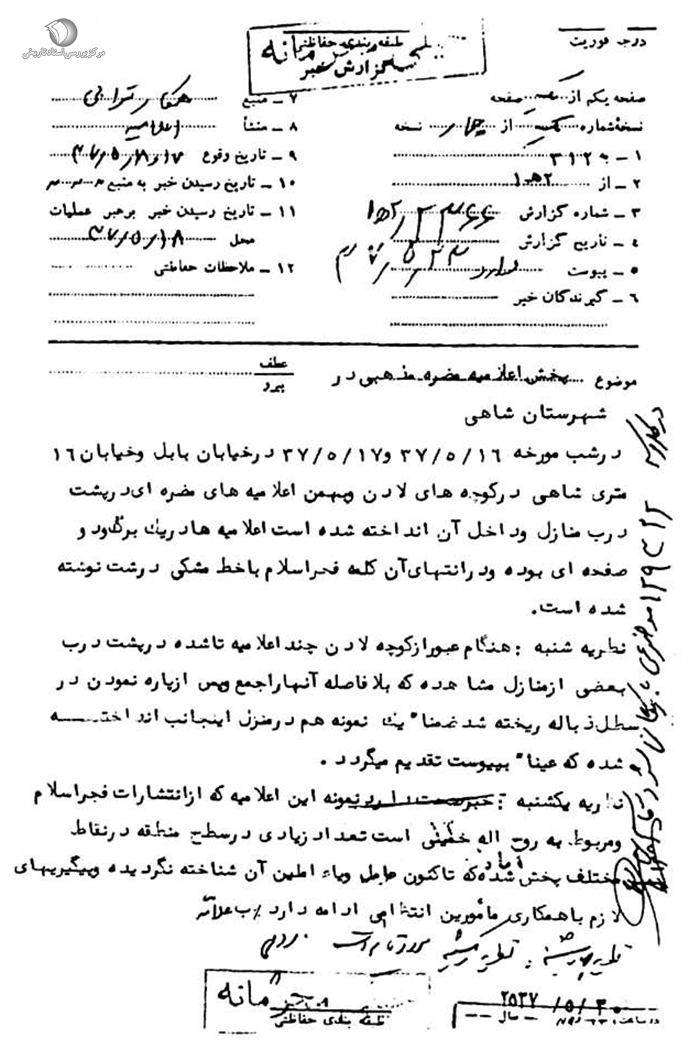 مرکز بررسی اسناد تاریخی
درجه فوریت
طبقه بندی حفاظتی
محرمانه
گزارش خبر
صفحه یکم از یک صفحه
نسخه شماره یک از چهار نسخه
۱ ـ به ۳۱۲
۲ ـ از ۲ھ۱
۳ ـ شماره گزارش
۴ ـ تاریخ گزارش
۵ ـ پیوست دارد
۶ ـ گیرندگان خبر
۷ ـ منبع همکار
۸ ـ منشأ اعلامیه
۹ ـ تاریخ وقوع
۱۰ ـ تاریخ رسیدن خبر به منبع
۱۱ ـ تاریخ رسیدن خبر برهبر عملیات
محل ۳۷/۵/۱۸
۱۲ ـ ملاحظات حفاظتی
موضوع پخش اعلامیه مضره مذهبی در
عطف
پیرو
شهرستان شاهی
درشب مورخه ۳۷/۵/۱۶ و ۳۷/۵/۱۷ درخیابان بابل وخیابان ۱۶
متری شاهی درکوچه های لادن وبهمن اعلامیه های مضره ای درپشت
درب منازل وداخل آن انداخته شده است اعلامیه ها دریك برگ ودو
صفحه ای بوده ودرانتهای آن کلمه فجراسلام باخط مشکی درشت نوشته
شده است.
نظریه شنبه : هنگام عبورازکوچه لادن چند اعلامیه تاشده درپشت درب
بعضی ازمنازل مشاهده که بلافاصله آنهاراجمع وپس ازپاره نمودن در
سطل زباله ریخته شد ضمنا" یك نمونه هم درمنزل اینجانب انداختـــه
شده که عینا" بپیوست تقدیم میگردد .
نظریه یکشنبه : خبرصحت دارد نمونه این اعلامیه که ازانتشارات فجراسلام
ومربوط به روح اله خمینی است تعداد زیادی درسطح منطقه درنقاط
مختلف پخش شده که تاکنون عامل ویاعاملین آن شناخته نگردیده وپیگیریهای
لازم باهمکاری مأمورین انتظامی ادامه دارد
نظریه چهارشنبه :
محرمانه
طبقه بندی حفاظتی
۲۵۳۷/۵/۳۰